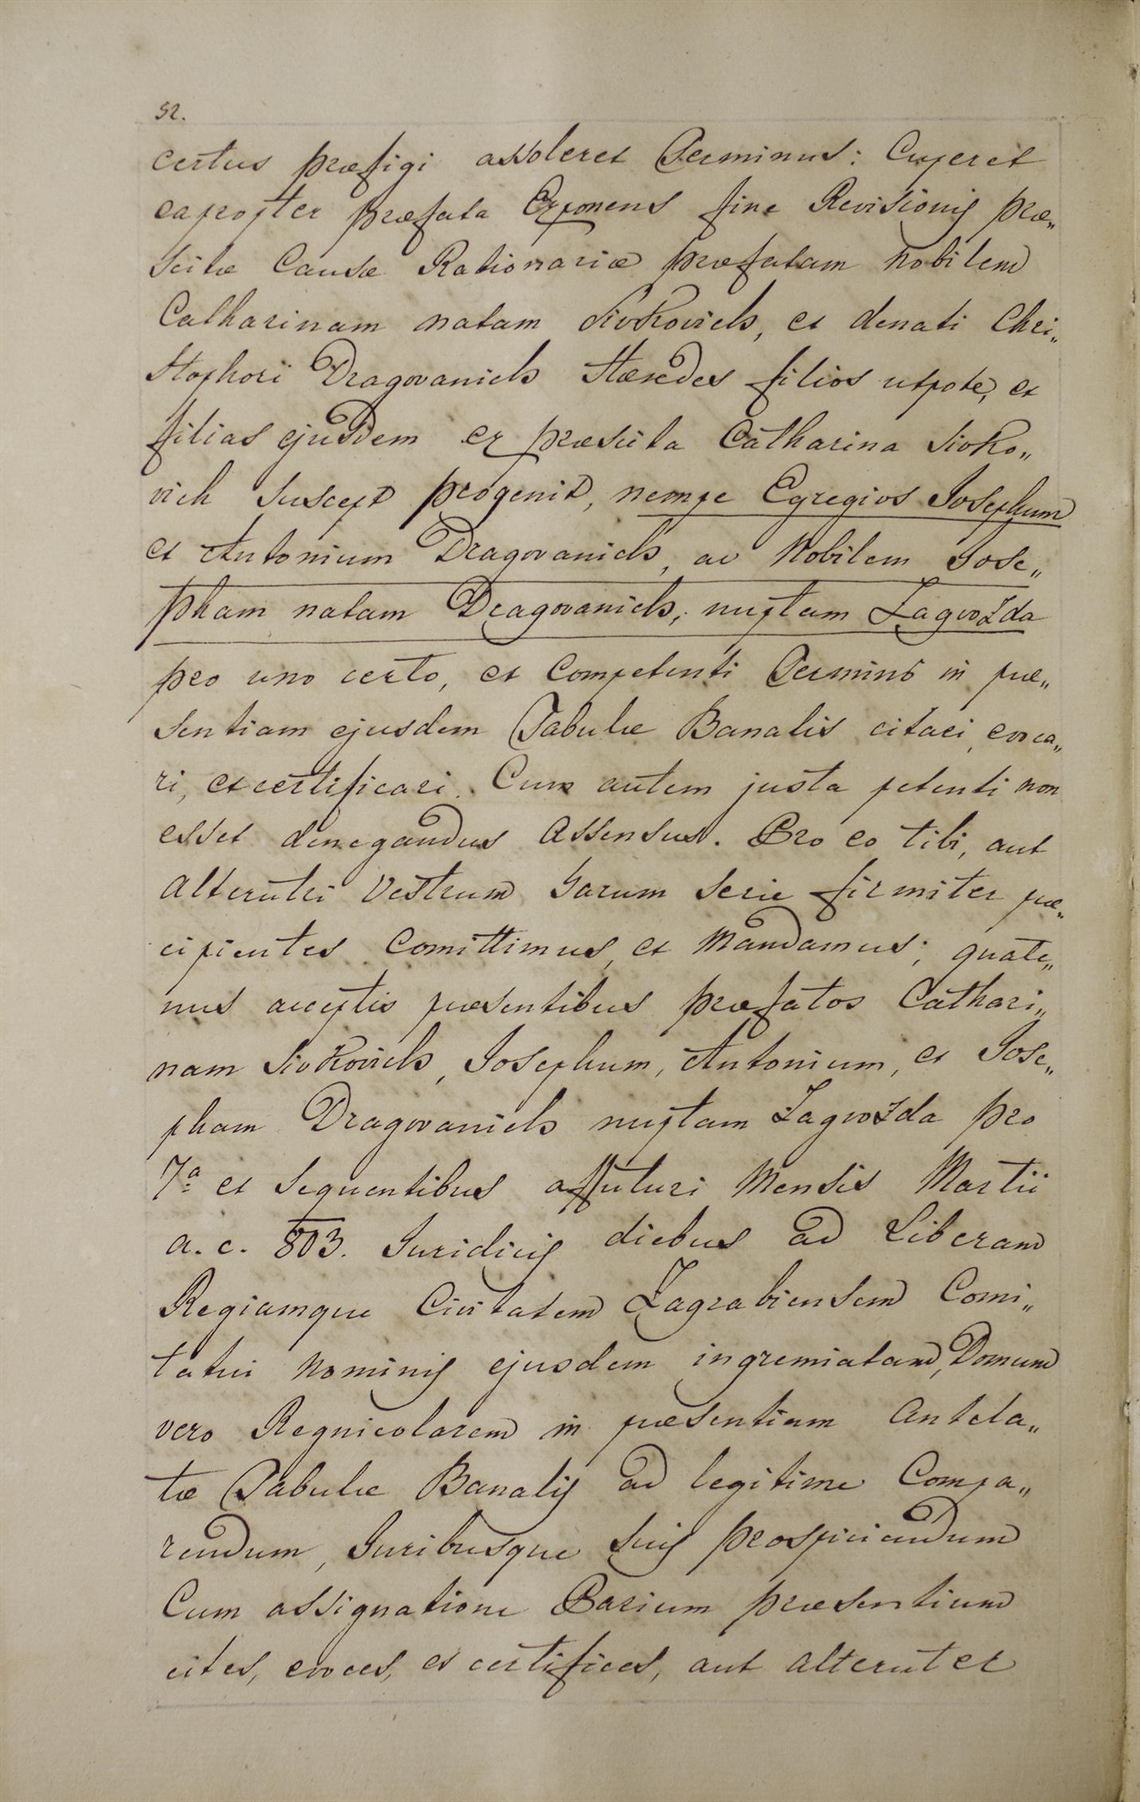 52.
certus præfigi assoleret Terminus: Cuperet
eapropter præfata Exponens fine Revisionis præ„
scitæ Causæ Rationariæ præfatam Nobilem
Catharinam natam Sivkovich, et denati Chri„
stophori Dragovanich Hæredes filios utpote, et
filias ejusdem ex præscita Catharina Sivko„
vich suscept progenit, nempe Egregios Josephum
et Antonium Dragovanich, ac Nobilem Jose„
pham natam Dragovanich, nuptam Zagvozda
pro uno certo, et Competenti Termino in præ„
sentiam ejusdem Tabulæ Banalis citari, evoca„
ri, et certificari. Cum autem justa petenti non
esset denegandus Assensus. Pro eo tibi, aut
Alterutri Vestrum harum serie firmiter præ„
cipientes Comittimus, et Mandamus; quate„
nus acceptis præsentibus præfatos Cathari„
nam Sivkovich, Josephum, Antonium, et Jose„
pham Dragovanich nuptam Zagvozda pro
7ª et sequentibus affuturi Mensis Martii
a. c. 803. Juridicis diebus ad Liberam
Regiamque Civitatem Zagrabiensem Comi„
tatui Nominis ejusdem ingremiatam, Domum
vero Regnicolarem in præsentiam Antela„
tæ Tabulæ Banalis ad legitime Compa„
rendum, Juribusque suis prospiciendum
Cum assignatione Parium præsentium
cites, evoces, et certifices, aut alteruter